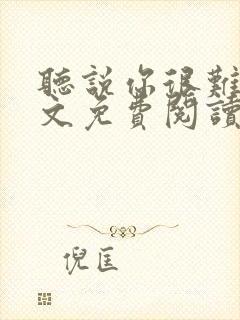 聽説你很難
文免費閱讀
倪匡